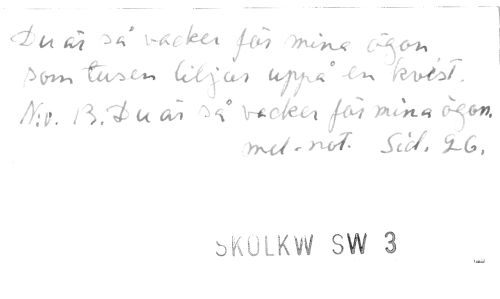 Du är så vacker för mina ögon
som tusen liljor uppå en kvist.
N:o. 13. Du är så vacker för mina ögon.
mel-not. Sid. 26.
SKOLKW SW 3